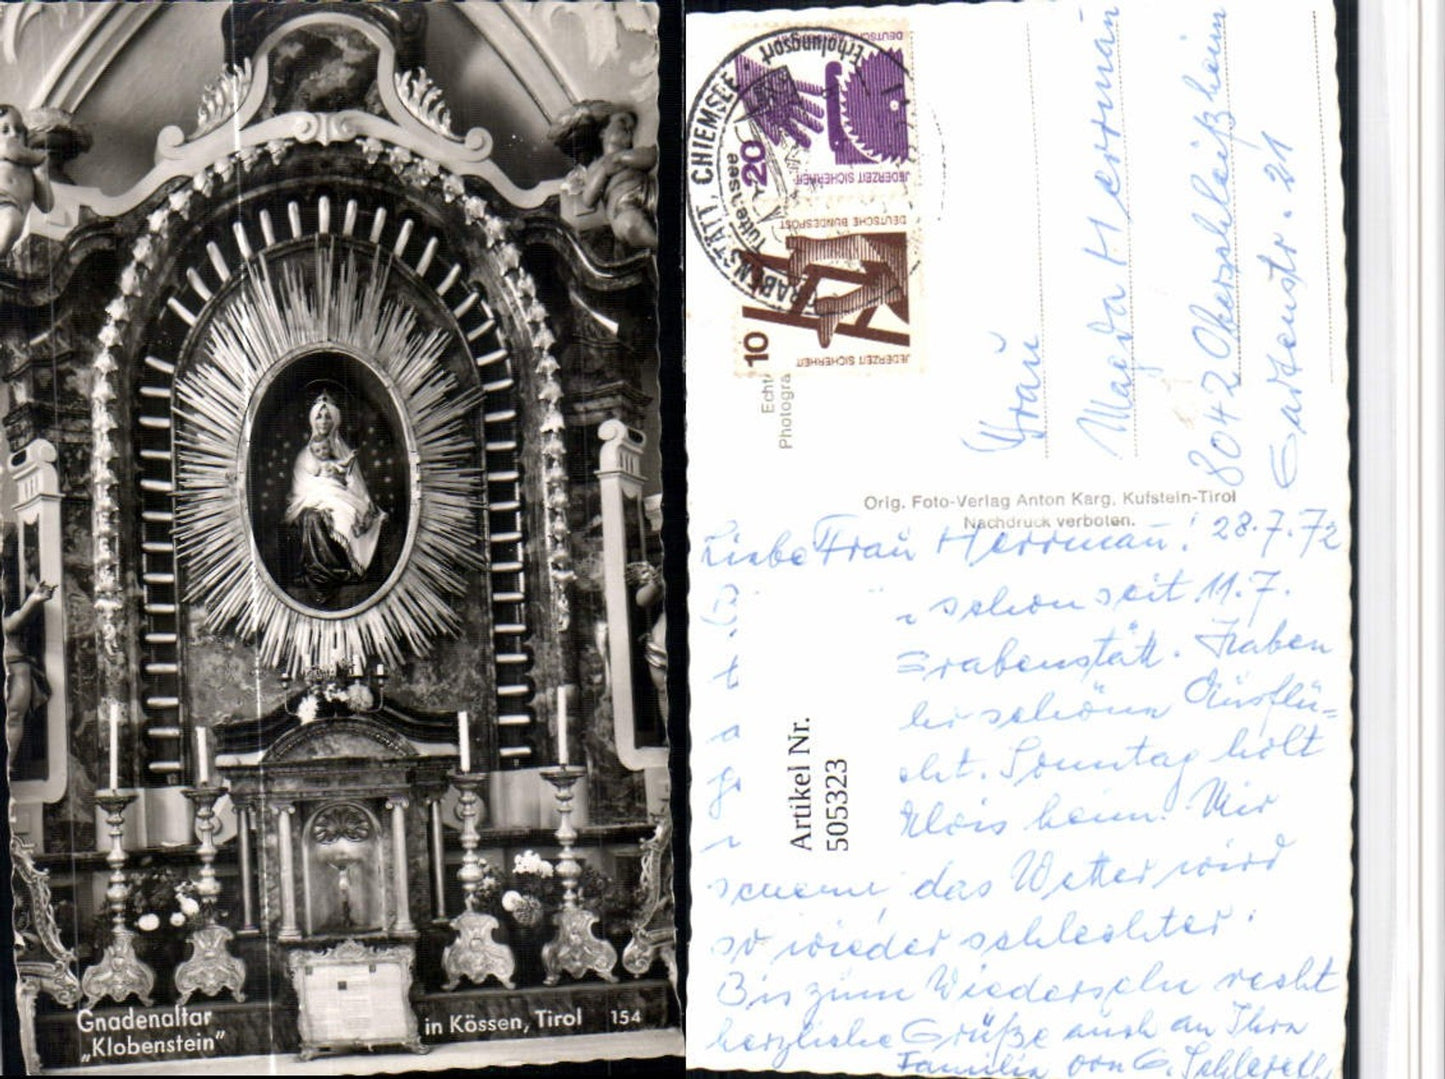 Gnadenaltar
„Klobenstein"
in Kössen, Tirol 154
GRABENSTÄTT, CHIEMSEE
Tüttensee
Erholungsort
20
DEUTSCHE BUNDESPOST
JEDERZEIT SICHERHEIT
10
DEUTSCHE BUNDESPOST
JEDERZEIT SICHERHEIT
Echt
Photogra
Frau
Magda Herrman
8042 Oberschleißheim
Gartenstr. 21
Orig. Foto-Verlag Anton Karg, Kufstein-Tirol
Nachdruck verboten.
Liebe Frau Herrman! 28.7.72
schon seit 11.7.
Grabenstätt. Haben
schöne Ausflü=
Sonntag holt
Alois heim. Wir
das Wetter wird
so wieder schlechter.
Bis zum Wiedersehn recht
herzliche Grüße auch an Ihre
Familie von G.
Artikel Nr.
505323